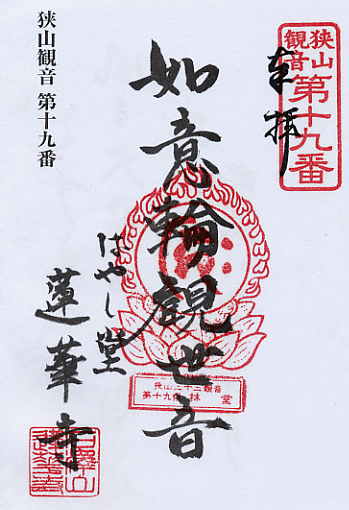 狭山観音 第十九番
奉拝
如意輪観世音
はやし堂
蓮華寺
狭山三十三観音
第十九番 林 堂
狭山観音 第十九番